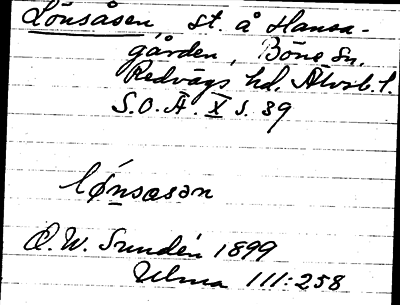 Lönsåsen, st. å Hansa-
gården, Böne sn.
Redvägs hd. Älvsb. l.
S.O.Ä. X s. 89
lǿnsåsən
O.W. Sundén 1899
Ulma 111:258